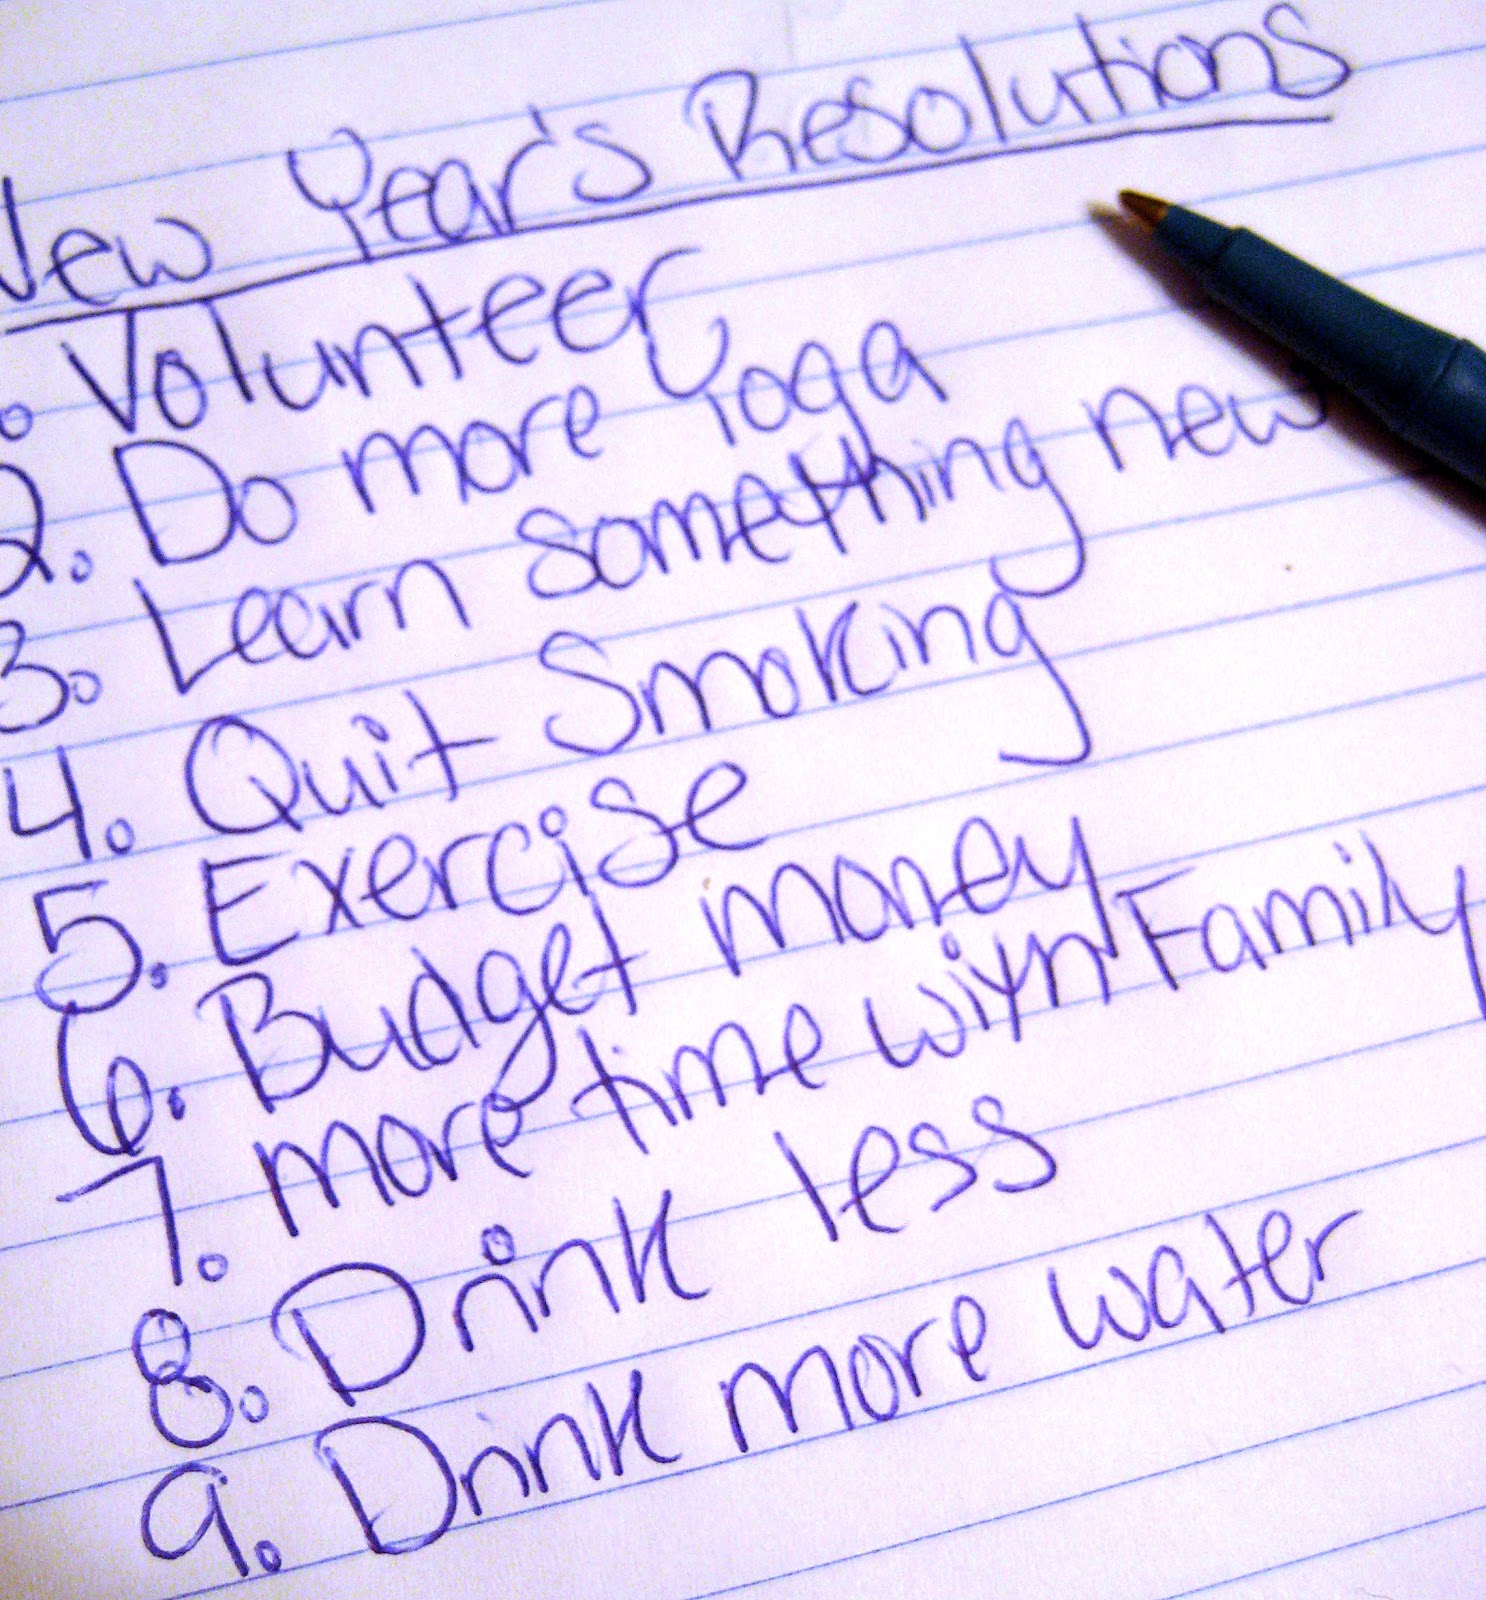 New Year's Resolutions
1. Volunteer
2. Do more Yoga
3. Learn something new
4. Quit Smoking
5. Exercise
6. Budget money
7. more time with Family
8. Drink less
9. Drink more water